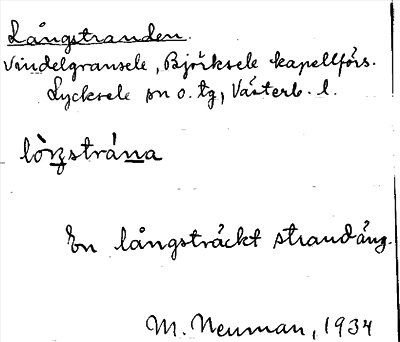 Långstranden.
Vindelgransele, Björksele kapellförs.
Lycksele sn o. tg, Västerb. l.
lòŋstrána
En långsträckt strandäng.
M. Neuman, 1934